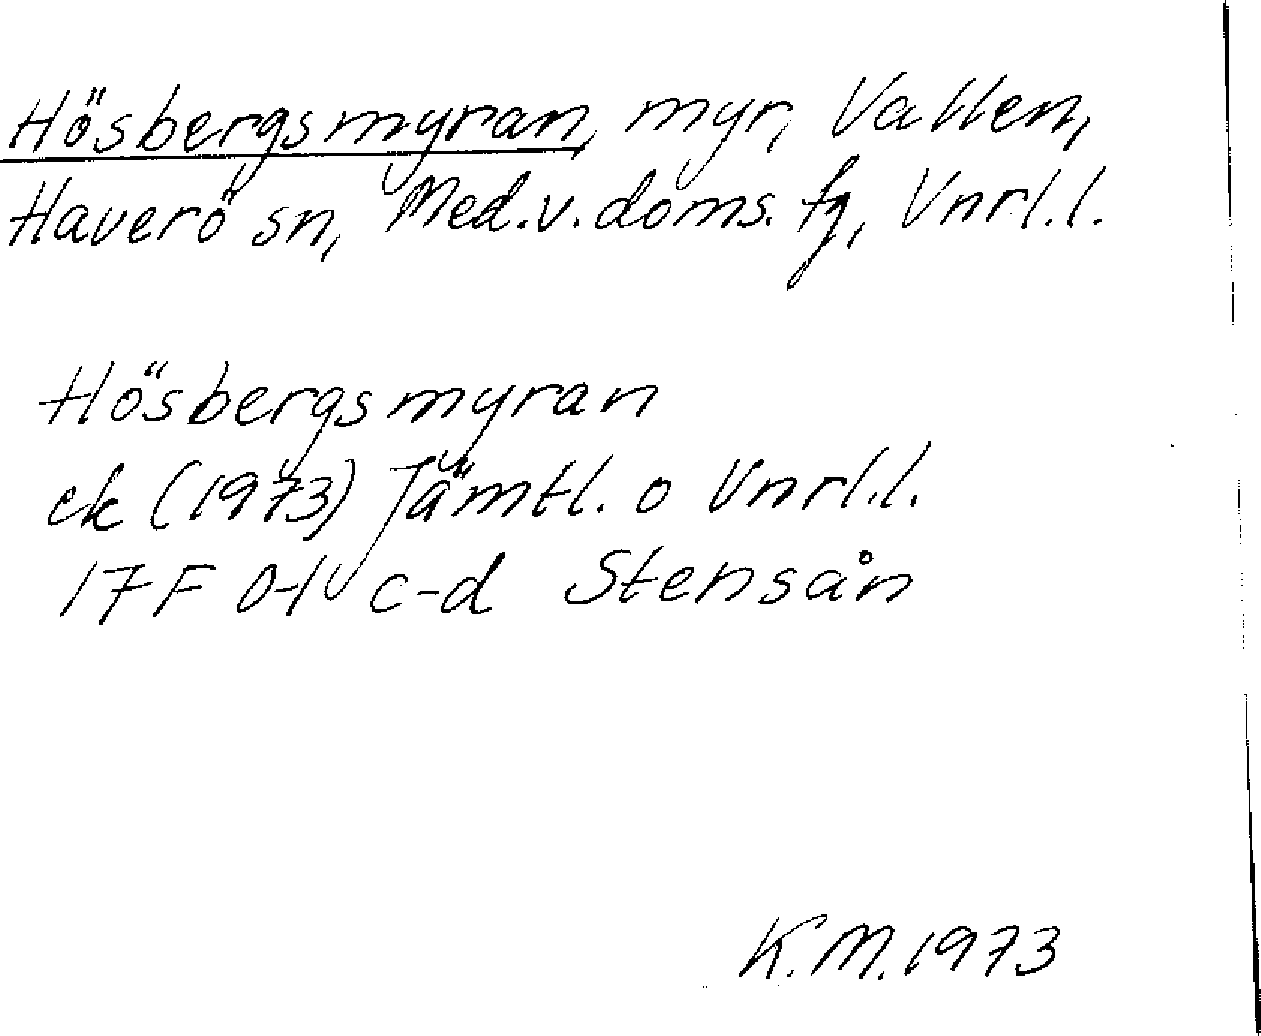 Hösbergsmyran, myr, Vallen,
Haverö sn, Med.v.doms.fg, Vnrl.l.
Hösbergsmyran
ek (1973) Jämtl. o Vnrl.l.
17F 0-1 c-d Stensån
K.M.1973